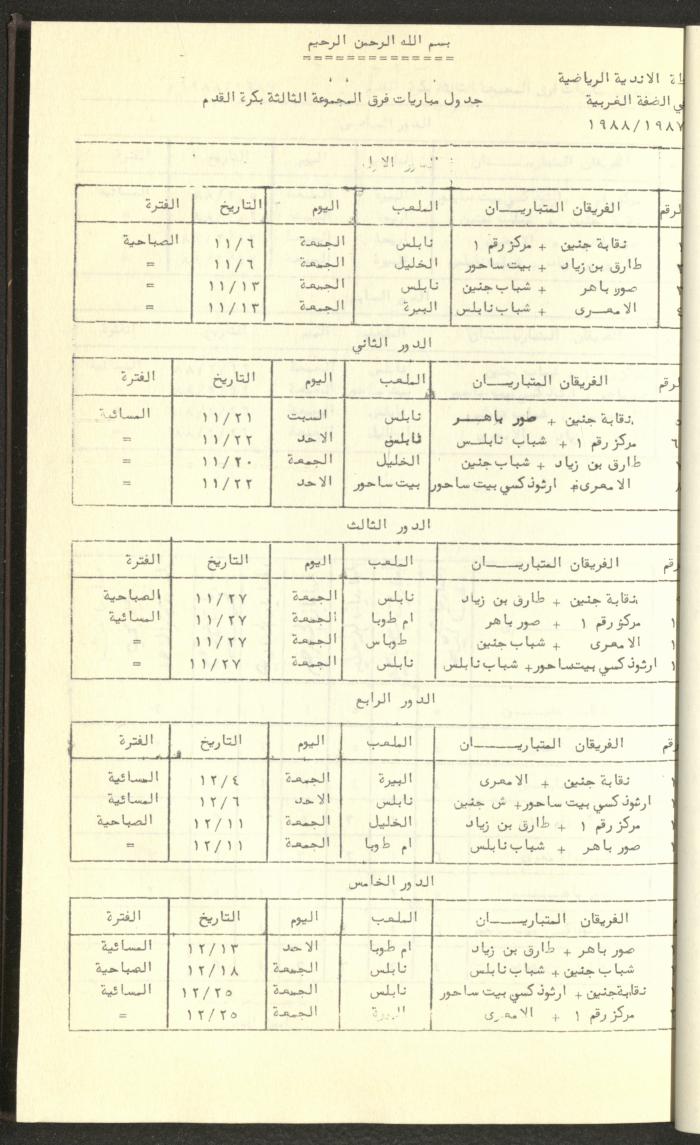 بسم الله الرحمن الرحيم
الاندية الرياضية
الضفة الغربية
جدول مباريات فرق المجموعة الثالثة بكرة القدم
١٩٨٨/١٩٨٧
الدور الاول
الفريقان المتباريـــان الملعب اليوم التاريخ الفترة
نقابة جنين + مركز رقم ١ نابلس الجمعة ١١/٦ الصباحية
طارق بن زياد + بيت ساحور الخليل الجمعة ١١/٦ =
صور باهر + شباب جنين نابلس الجمعة ١١/١٣ =
٤ الامعـرى + شباب نابلس البيرة الجمعة ١١/١٣ =
الدور الثاني
الفريقان المتباريـــان الملعب اليوم التاريخ الفترة
نقابة جنين + صور باهـــر نابلس السبت ١١/٢١ المسائية
٦ مركز رقم ١ + شباب نابلـس نابلس الاحد ١١/٢٢ =
طارق بن زياد + شباب جنين الخليل الجمعة ١١/٢٠ =
٨ الامعرى + ارثوذكسي بيت ساحور بيت ساحور الاحد ١١/٢٢ =
الدور الثالث
الفريقان المتباريـــان الملعب اليوم التاريخ الفترة
نقابة جنين + طارق بن زياد نابلس الجمعة ١١/٢٧ الصباحية
مركز رقم ١ + صور باهر ام طوبا الجمعة ١١/٢٧ المسائية
الامعرى + شباب جنين طوباس الجمعة ١١/٢٧ =
ارثوذكسي بيت ساحور + شباب نابلس نابلس الجمعة ١١/٢٧ =
الدور الرابع
الفريقان المتباريـــان الملعب اليوم التاريخ الفترة
نقابة جنين + الامعرى البيرة الجمعة ١٢/٤ المسائية
ارثوذكسي بيت ساحور + ش جنين نابلس الاحد ١٢/٦ المسائية
مركز رقم ١ + طارق بن زياد الخليل الجمعة ١٢/١١ الصباحية
صور باهر + شباب نابلس ام طوبا الجمعة ١٢/١١ =
الدور الخامس
الفريقان المتباريـــان الملعب اليوم التاريخ الفترة
صور باهر + طارق بن زياد ام طوبا الاحد ١٢/١٣ المسائية
شباب جنين + شباب نابلس نابلس الجمعة ١٢/١٨ الصباحية
نقابة جنين + ارثوذكسي بيت ساحور نابلس الجمعة ١٢/٢٥ المسائية
مركز رقم ١ + الامعرى البيرة الجمعة ١٢/٢٥ =